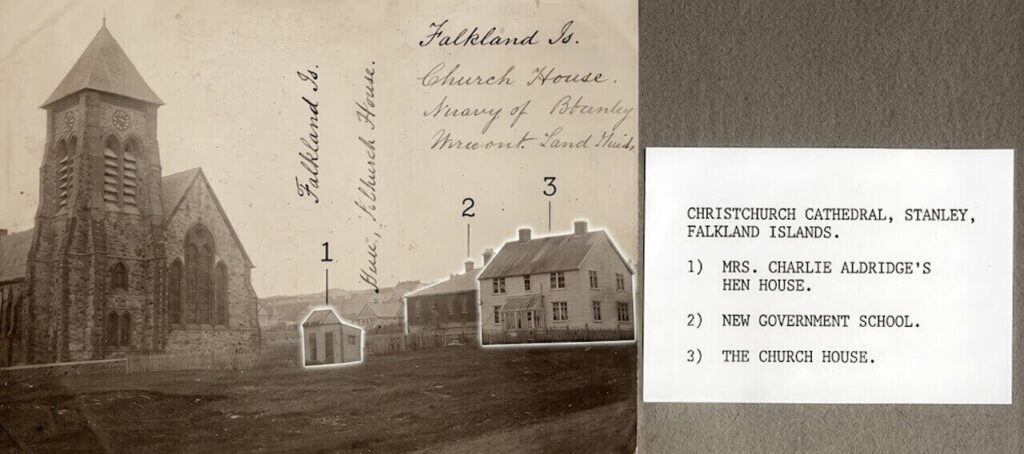 Falkland Is.
Church House.
of
Land
Falkland Is.
House.
1
2
3
CHRISTCHURCH CATHEDRAL, STANLEY,
FALKLAND ISLANDS.
1) MRS. CHARLIE ALDRIDGE'S
HEN HOUSE.
2) NEW GOVERNMENT SCHOOL.
3) THE CHURCH HOUSE.